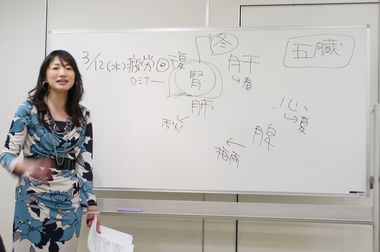 3/12(水)疲労回復
セミナー
冬
腎
肝
↳春
五臓
肺
秋
心
↳夏
腹
梅雨